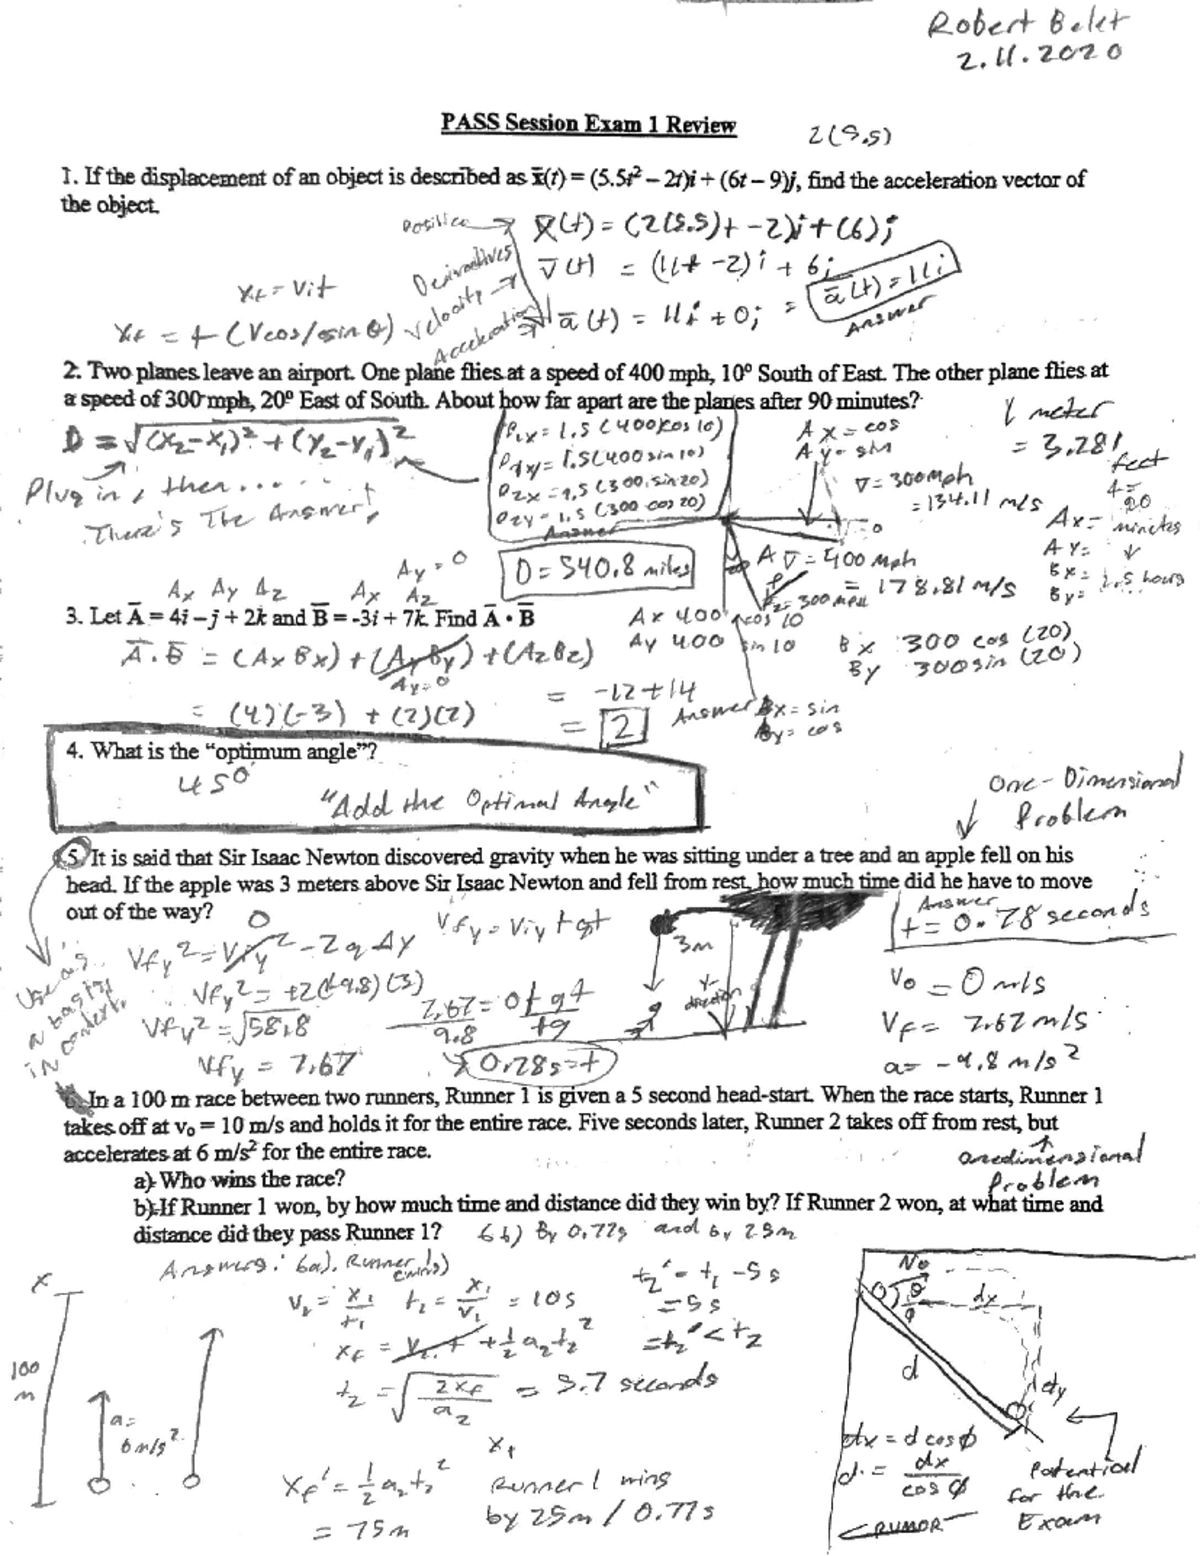 Robert Belet
2.11.2020
PASS Session Exam 1 Review
2(5.5)
1. If the displacement of an object is described as x̄(t) = (5.5t² – 2t)i + (6t – 9)j, find the acceleration vector of
the object.
Position → x̄(t) = (2(5.5)t -2)i + (6)j
Derivatives
Velocity → v̄(t) = (11t -2)i + 6j
Acceleration → ā(t) = 11i + 0j = ā(t) = 11i
Answer
Xf = Vit
Xf = t(Vcos/sin θ)
2. Two planes leave an airport. One plane flies at a speed of 400 mph, 10º South of East. The other plane flies at
a speed of 300 mph, 20º East of South. About how far apart are the planes after 90 minutes?
D = √(X₂-X₁)² + (Y₂-Y₁)²
Plug in, then.....
There's The Answer!
P1x = 1.5(400)cos 10)
P1y = 1.5(400 sin 10)
P2x = 1.5(300.sin 20)
P2y = 1.5(300 cos 20)
Answer
D = 540.8 miles
Ax = cos
Ay = sin
V = 300mph
= 134.11 m/s
1 meter
= 3.281
feet
Ax = minutes
Ay =
Bx = 1.5 hours
By =
A V = 400 mph
= 178.81 m/s
P2 = 300 mph
Ax 400 cos 10
Ay 400 sin 10
Bx 300 cos (20)
By 300 sin (20)
Bx = sin
By = cos
Ay = 0
Ax Ay Az Ax Az
3. Let Ā = 4i – j + 2k and B̄ = -3i + 7k. Find Ā • B̄
Ā.B̄ = (AxBx) + (AyBy) + (AzBz)
Ay=0
= (4)(-3) + (2)(7)
= -12+14
= 2 Answer
4. What is the “optimum angle”?
45°
"Add the Optimal Angle"
One-Dimensional
Problem
5. It is said that Sir Isaac Newton discovered gravity when he was sitting under a tree and an apple fell on his
head. If the apple was 3 meters above Sir Isaac Newton and fell from rest, how much time did he have to move
out of the way?
Answer
t = 0.78 seconds
Use as
a basis
in context.
0
Vfy² = Viy² - 2g Δy
Vfy² = +2(+9.8)(3)
Vfy² = √58.8
Vfy = 7.67
Vfy = Viy + gt
7.67 = 0 + gt
9.8 +g
0.78s = t
3m
y-
direction
g
V₀ = 0 m/s
Vf = 7.67 m/s
a = -9.8 m/s²
6. In a 100 m race between two runners, Runner 1 is given a 5 second head-start. When the race starts, Runner 1
takes off at v₀ = 10 m/s and holds it for the entire race. Five seconds later, Runner 2 takes off from rest, but
accelerates at 6 m/s² for the entire race.
onedimensional
Problem
a) Who wins the race?
b) If Runner 1 won, by how much time and distance did they win by? If Runner 2 won, at what time and
distance did they pass Runner 1?
6b) By 0.77s and by 25m
Answers: 6a). Runner 1
(wins)
X
100
m
a=
6 m/s²
V₁ = X₁/t₁ t₁ = X₁/V₁ = 10s
Xf = V₂.t + ½a₂t₂²
t₂ = √2Xf/a₂ = 5.7 seconds
t₂' = t₁ - 5s
= 5s
= t₂' < t₂
Xf' = ½a₂t₂²
= 75m
Runner 1 wins
by 25m / 0.77s
No
θ
dx
d
dy
dx = d cosϕ
d = dx/cosϕ
RUMOR
Potential
for the
Exam